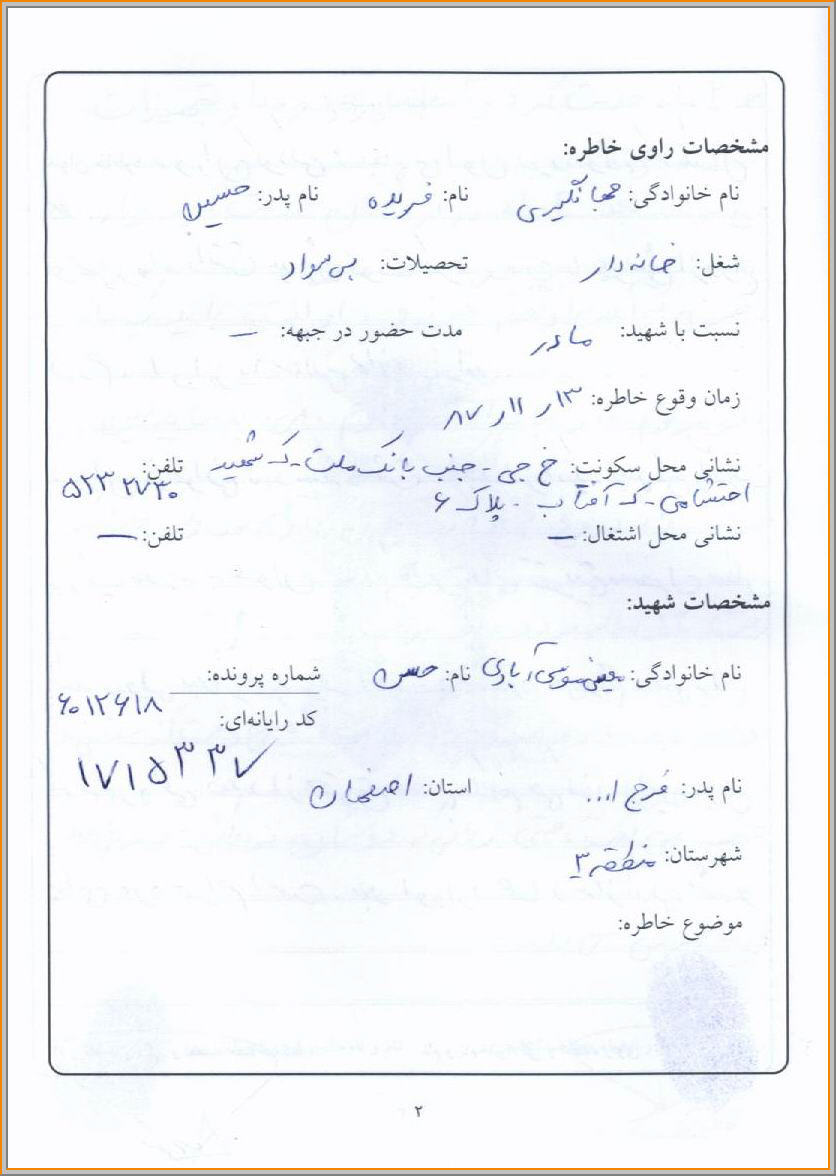 مشخصات راوی خاطره:
نام خانوادگی: جهانگیری نام: فریده نام پدر: حسین
شغل: خانه‌دار تحصیلات: بی‌سواد
نسبت با شهید: مادر مدت حضور در جبهه: —
زمان وقوع خاطره: ۱۳ر ۱۱ر ۸۷
نشانی محل سکونت: خ جی - جنب بانک ملت - ک شهید تلفن:
احتشامی - ک آفتاب - پلاک ۶
نشانی محل اشتغال: — تلفن: —
مشخصات شهید:
نام خانوادگی: آبادی نام: حسن شماره پرونده:
۶۰۱۲۶۱۸
کد رایانه‌ای:
۱۷۱۵۳۳۷
نام پدر: فرج ا... استان: اصفهان
شهرستان: منطقه ۳
موضوع خاطره:
۲